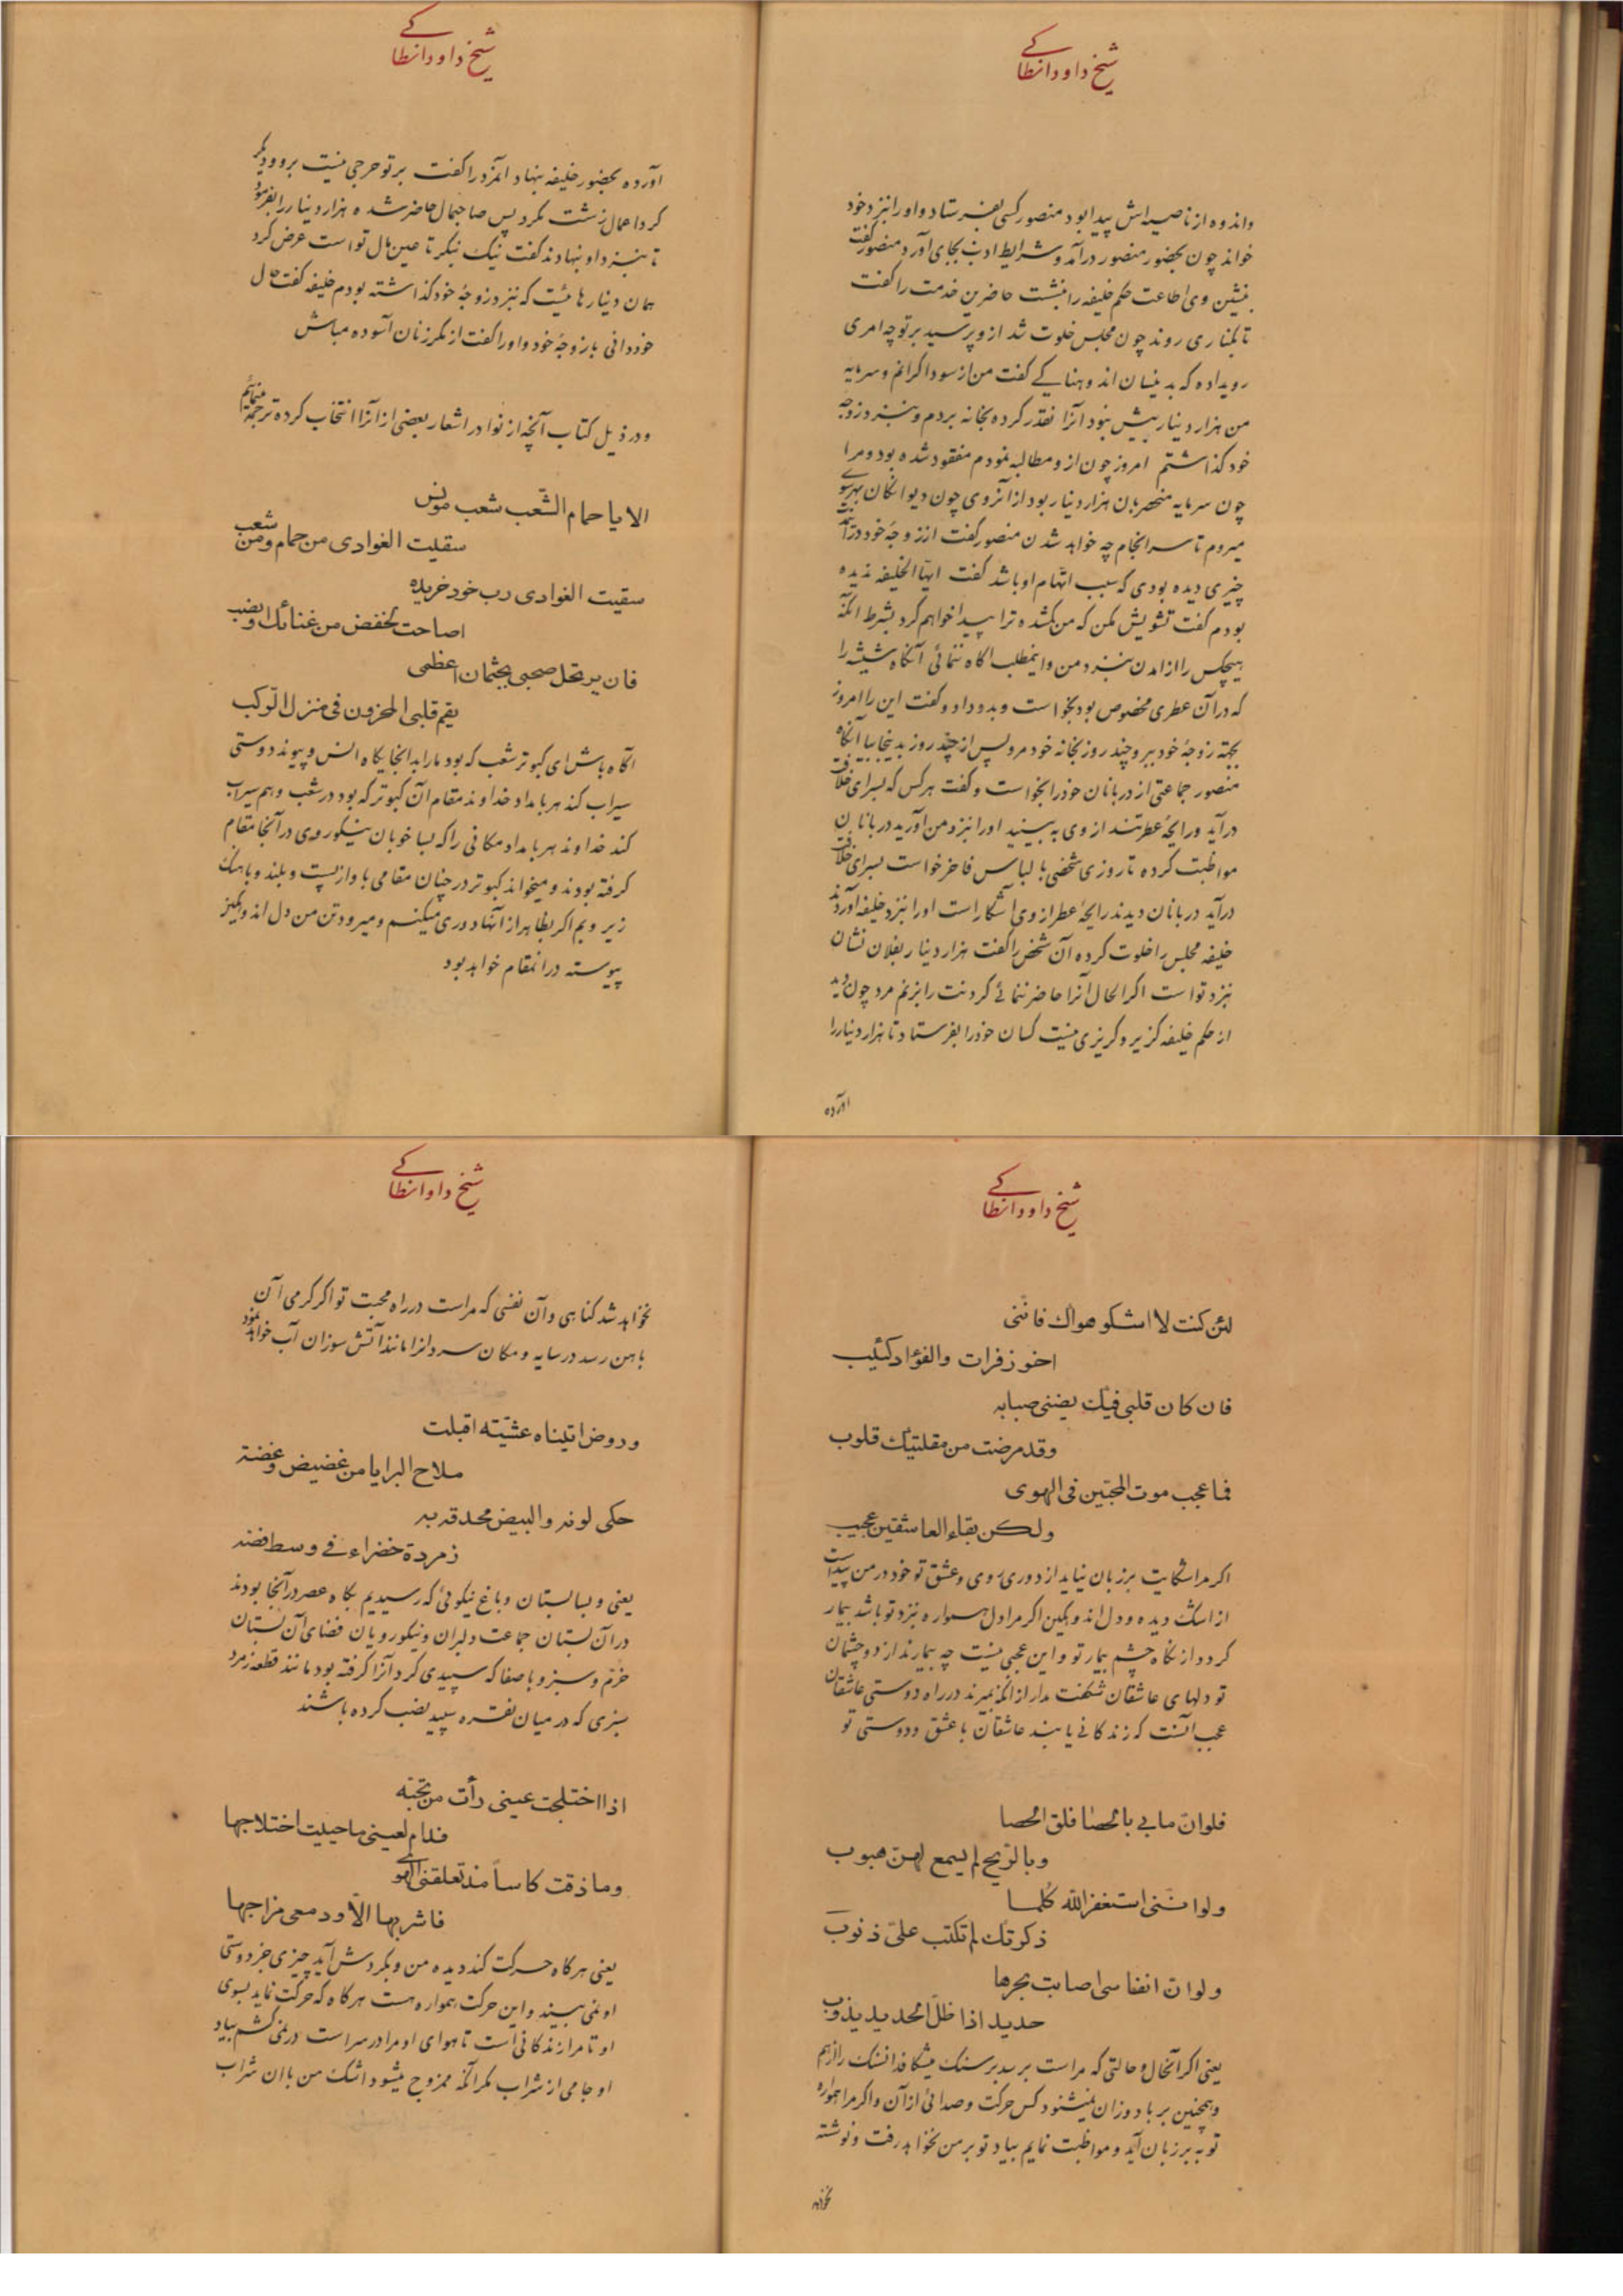 شیخ داود انطاکے
واندوه از ناصیه‌اش پیدا بود منصور کسی بفرستاد و او را نزد خود
خواند چون بحضور منصور درآمد و شرایط ادب بجای آورد منصور گفت
بنشین وی اطاعت حکم خلیفه را بنشست حاضرین خدمت را گفت
تا بکناری روند چون مجلس خلوت شد از و پرسید بر تو چه امری
رویداده که بدینسان اندوهناکے گفت من از سوداگرانم و سرمایه
من هزار دینار بیش نبود آنرا نقد کرده بخانه بردم و بنزد زوجه
خود گذاشتم امروز چون از و مطالبه نمودم مفقود شده بود و مرا
چون سرمایه منحصر بان هزار دینار بود از آنروی چون دیوانگان بهر سوے
میروم تا سرانجام چه خواهد شد ن منصور گفت از زوجهٔ خود در آمد
چیزی دیده بودی که سبب اتهام او باشد گفت ایها الخلیفه ندیده
بودم گفت تشویش مکن که من گمشده ترا پیدا خواهم کرد بشرط آنکه
هیچکس را از آمدن بنزد من و اینمطلب آگاه ننمائی آنگاه شیشه را
که در آن عطری مخصوص بود بخواست و بدو داد و گفت این را امروز
بجهة زوجهٔ خود ببر و چند روز بخانه خود مرو پس از چند روز بدینجا بیا آنگاه
منصور جماعتی از دربانان خود را بخواست و گفت هر کس که بسرای خلافت
درآید و رایحهٔ عطر تند از وی به بینید او را بنزد من آورید دربانان
مواظبت کرده تا روزی شخصی با لباس فاخر خواست بسرای خلافت
درآید دربانان دیدند رایحهٔ عطر از وی آشکار است او را بنزد خلیفه آوردند
خلیفه مجلس را خلوت کرده آن شخص را گفت هزار دینار بفلان نشان
بنزد تو است اگر الحال آنرا حاضر ننمائے گردنت را بزنم مرد چون دید
از حکم خلیفه گزیر و گریزی نیست کسان خود را بفرستاد تا هزار دینار را
آورده
شیخ داود انطاکے
آورده بحضور خلیفه بنهاد آنمرد را گفت بر تو حرجی نیست برو و دیگر
گرد اعمال زشت مگرد پس صاحبمال حاضر شده هزار دینار را بفرمود
تا بنزد او بنهادند گفت نیک بنگر تا عین مال تو است عرض کرد
همان دینارهائیست که بنزد زوجهٔ خود گذاشته بودم خلیفه گفت حال
خود دانی با زوجهٔ خود و او را گفت از مکر زنان آسوده مباش
و در ذیل کتاب آنچه از نوادر اشعار بعضی از آنرا انتخاب کرده ترجمه مینمائیم
الا یا حمام الشّعب شعب مونس
سقیت الغوادی من حمام و من شعب
سقیت الغوادی رب خود خریده
اصاحت لخفض من غنائک او نصب
فان یرتحل صحبی بجثمان اعظمی
یقم قلبی المحزون فی منزل الرّکب
آگاه باش ای کبوتر شعب که بود ما را بدانجا یگاه انس و پیوند دوستی
سیراب کند هر بامداد خداوند مقام آن کبوتر که بود در شعب و هم سیراب
کند خداوند هر بامداد مکانی را که بسا خوبان نیکوروی در آنجا مقام
گرفته بودند و میخواند کبوتر در چنان مقامی با واز پست و بلند و باهنگ
زیر و بم اگر بظاهر از آنها دوری میکنم و میرود تن من دل اندوهگین
پیوسته در انمقام خواهد بود
شیخ داود انطاکے
لئن کنت لا اشکو هواک فانّنی
اخو زفرات والفؤاد کئیب
فان کان قلبی فیک یضنی صبابه
وقد مرضت من مقلتیک قلوب
فما عجب موت المحبّین فی الهوی
ولکن بقاء العاشقین عجیب
اگر مرا شکایت بر زبان نیاید از دوری روی و عشق تو خود در من پیداست
از اشک دیده و دل اندوهگین اگر مرا دل همواره نزد تو باشد بیمار
گردد از نگاه چشم بیمار تو و این عجبی نیست چه بیمارند از دو چشمان
تو دلهای عاشقان شگفت مدار از آنکه بمیرند در راه دوستی عاشقان
عجب آنست که زندگانے یابند عاشقان با عشق و دوستی تو
فلو انّ مابی بالحصا فلق الحصا
وبالرّیح لم یسمع لهنّ هبوب
ولو انّنی استغفر اللّه کلّما
ذکرتک لم تکتب علیّ ذنوب
ولو انّ انفاسی اصابت بحرها
حدید اذا ظلّ الحدید یذوب
یعنی اگر آنحال و حالتی که مراست برسد بر سنگ میشکافد انسنگ را از هم
و همچنین بر باد وزان نمیشنود کس حرکت و صدائی از آن و اگر مرا همواره
توبه بر زبان آید و مواظبت نمایم بیاد تو بر من نخواهد رفت و نوشته
نخواهد
شیخ داود انطاکے
نخواهد شد گناهی و آن نفسی که مراست در راه محبت تو اگر گرمی آن
باهن رسد در سایه و مکان سرد آنرا مانند آتش سوزان آب خواهد نمود
وروض اتیناه عشیّته اقبلت
ملاح البرایا من غضیض و غضة
حکی لونه والبیض محدقه به
زمردة خضراء فے وسط فضه
یعنی و بسا بستان و باغ نیکوئی که رسیدیم بگاه عصر در آنجا بودند
در آن بستان جماعت دلبران و نیکورویان فضای آن بستان
خرّم و سبز و باصفا که سپیدی گرد آنرا گرفته بود مانند قطعه زمرد
سبزی که در میان نقره سپید نصب کرده باشند
اذا اختلجت عینی رأت من تحبّه
فدام لعینی ما حییت اختلاجها
وما ذقت کاساً مذ تعلقنی الهوی
فاشربها الّا و دمعی مزاجها
یعنی هر گاه حرکت کند دیده من و بگردش آید چیزی جز دوستی
او نمی بیند و این حرکت همواره هست هر گاه که حرکت نماید بسوی
او تا مرا زندگانی است تا هوای او مرا در سر است در نمی کشم بیاد
او جامی از شراب مگر آنکه ممزوج میشود اشک من با ان شراب